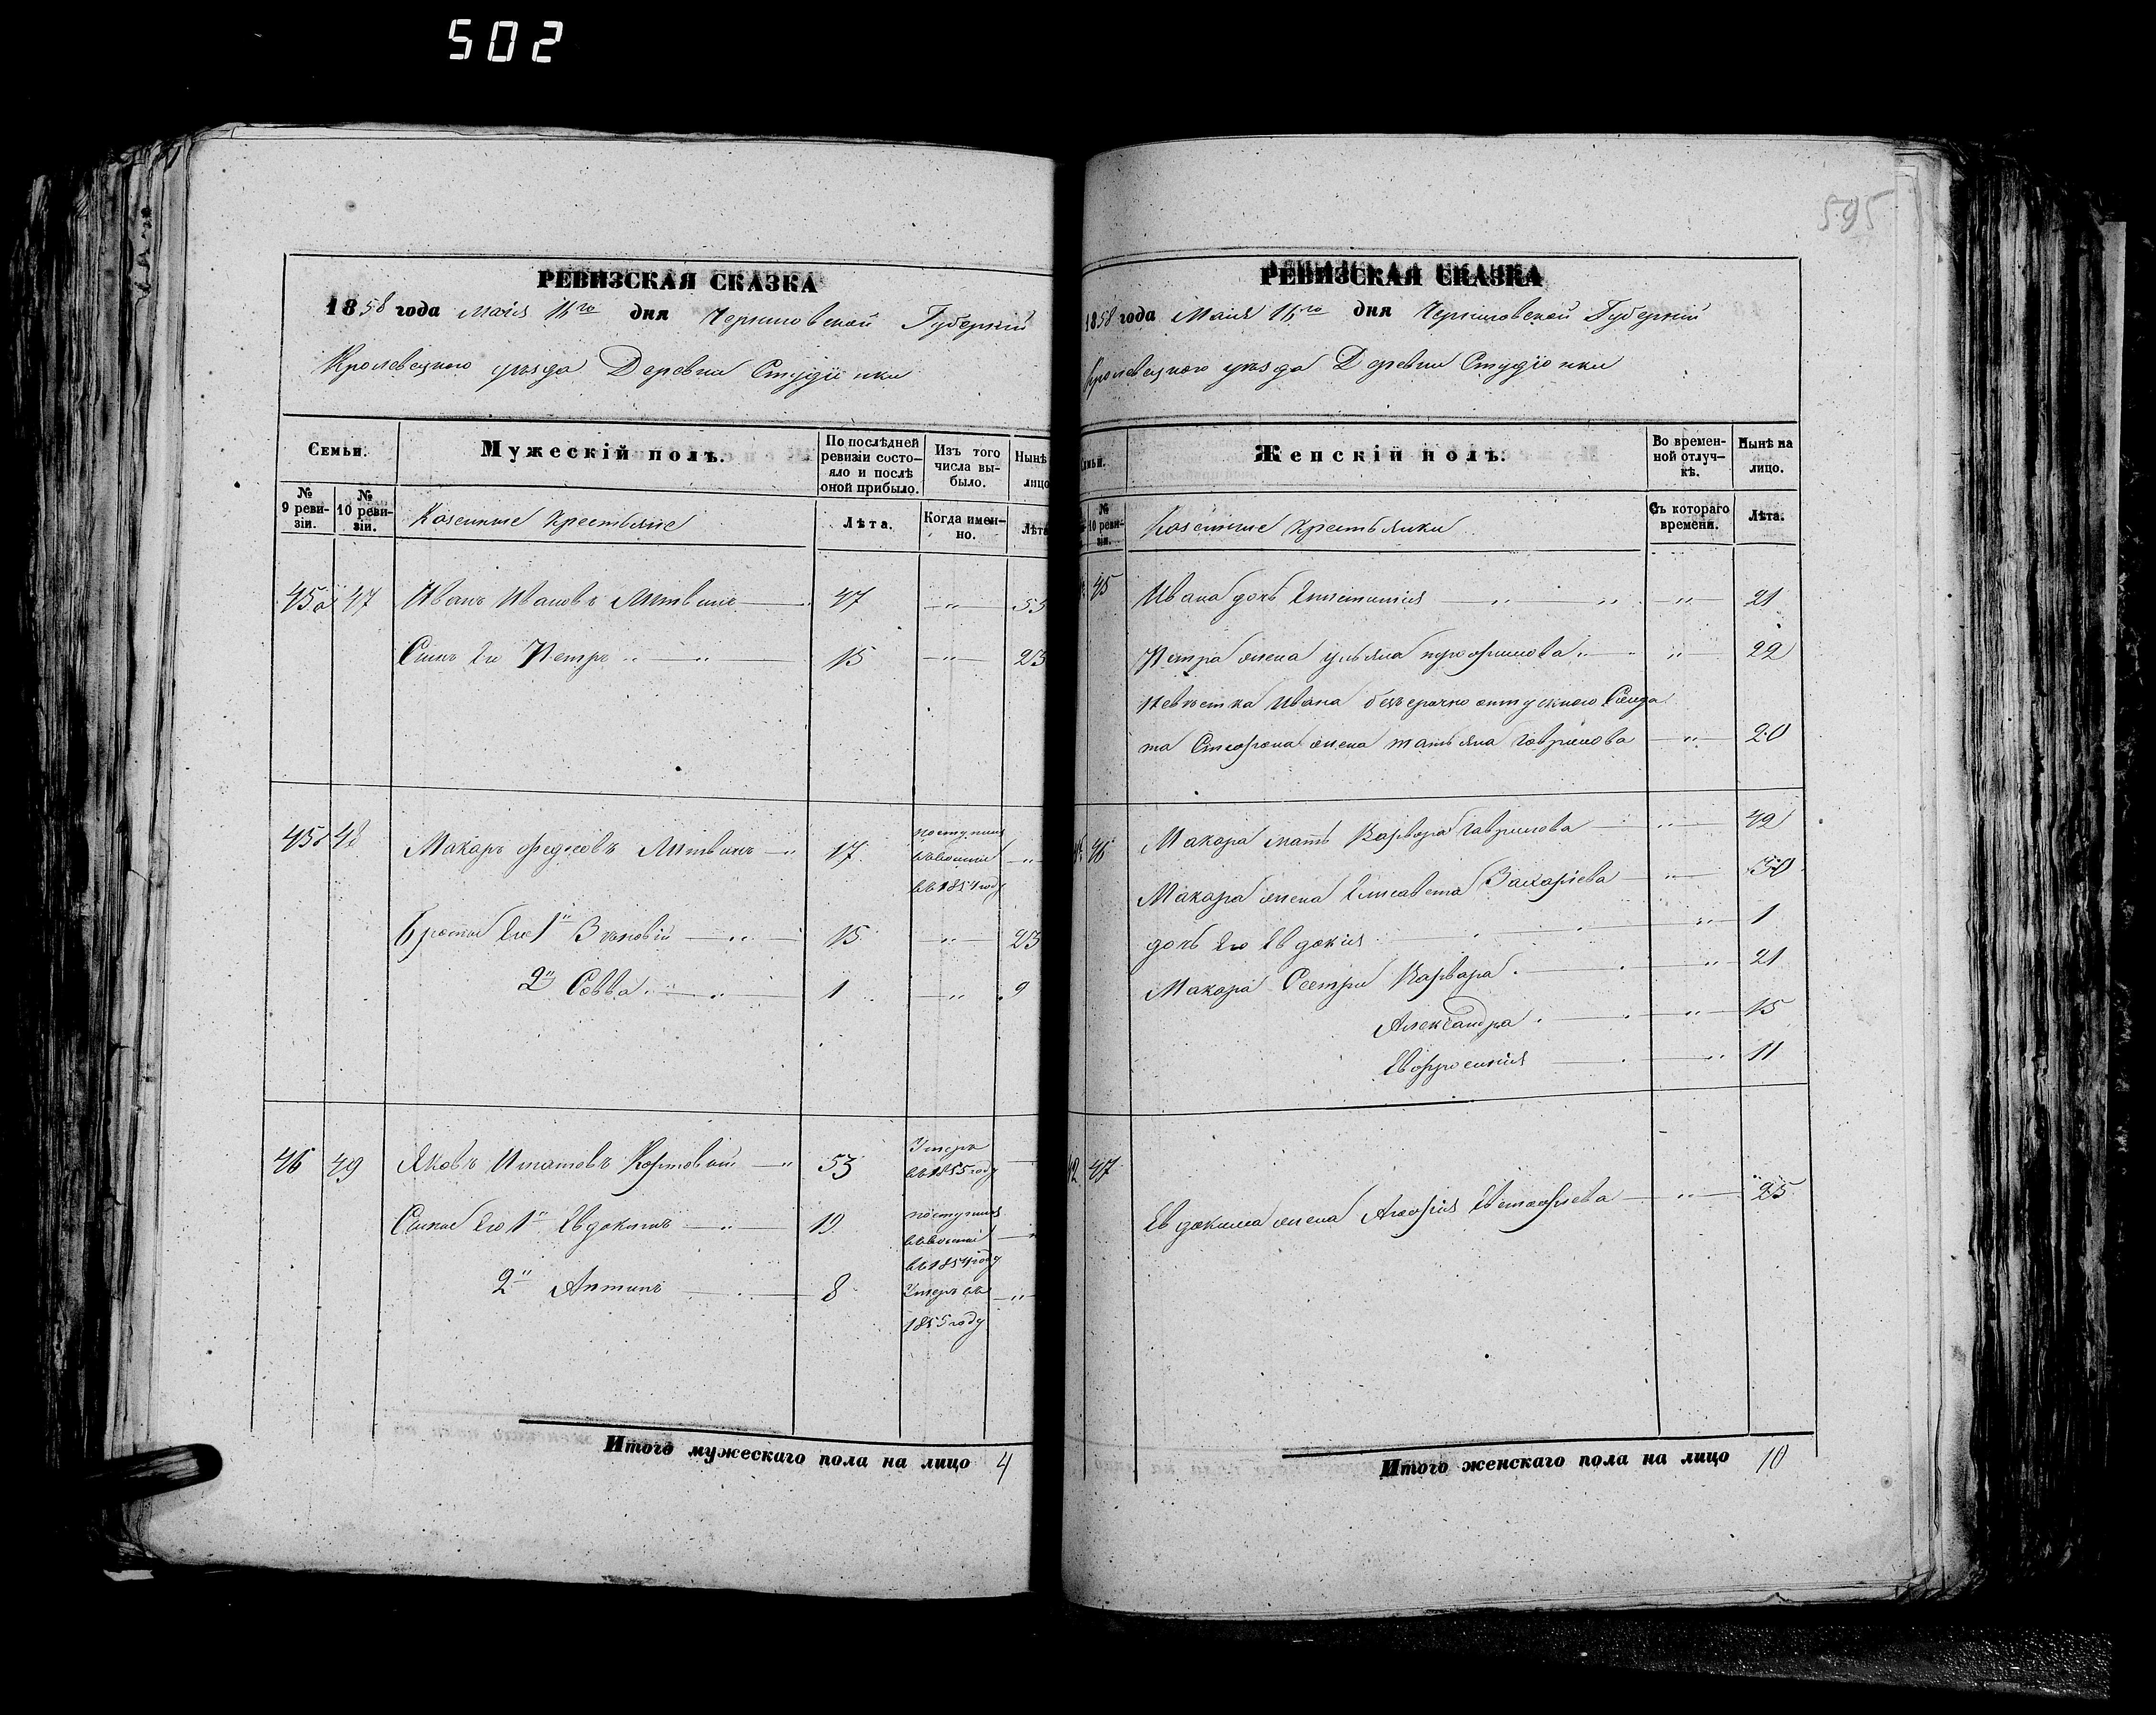 502
595
РЕВИЗСКАЯ СКАЗКА
1858 года Маія дня Черниговской Губерніи
Кролевецкого уѣзда Деревни Студіонки
Семьи. Мужескій полъ. По послѣдней ревизіи состояло и послѣ оной прибыло. Изъ того числа выбыло. Нынѣ лицо
№ 9 ревизіи. № 10 ревизіи. Казенные Крестьяне Лѣта. Когда именно. Лѣта
45 47 Иванъ Ивановъ Литвинъ 47 — „ 55
Сынъ Его Петръ „ — „ 15 — „ 23
45 48 Макаръ Федосовъ Литвинъ — „ 17 поступилъ
въ 1854 году
Братья Его 1й Зѣновій — „ — 15 — „ 23
2й Савва — „ 1 — „ 9
46 49 Яковъ Игнатовъ Кортовый — „ 53 Умеръ
въ 1855 году
Сыны Его 1й Евдокимъ — „ 19 поступилъ
въ 1854 году
2й Антипъ 8 Умеръ въ
1855 году
Итого мужескаго пола на лицо 4
РЕВИЗСКАЯ СКАЗКА
1858 года Маія дня Черниговской Губерніи
Кролевецкого уѣзда Деревни Студіонки
Семьи. Женскій полъ. Во временной отлучкѣ. Нынѣ на лицо.
№ 10 ревизіи. Казенные Крестьянки Съ котораго времени. Лѣта.
45 Ивана дочь — „ 21
Петра жена Ульяна „ 22
Невѣстка Ивана безсрочно отпускного Солда
та Стефана жена татьяна Гаврилова — „ 20
46 Макара мать Варвара Гаврилова — „ 42
Макара жена Елисавета Захарiева — „ 30
дочь Его Евдокія „ 1
Макара Сестры Варвара — „ 21
Александра „ 15
Евфросинія — „ 11
47
Евдокима жена Агафія Евстафіева — „ 25
Итого женскаго пола на лицо 10